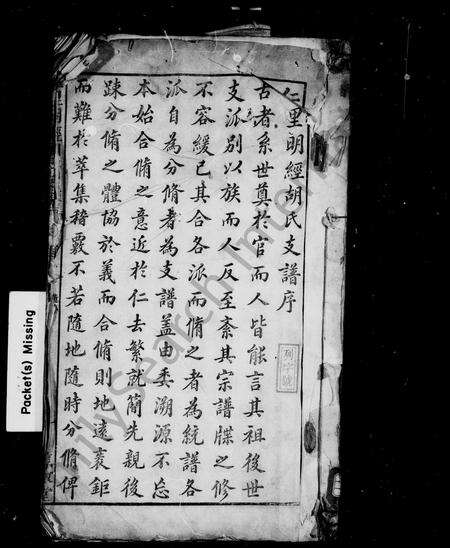 仁里明經胡氏支譜序
古者系世奠於官而人皆能言其祖後世
支派別以族而人反至紊其宗譜牒之修
不容緩已其合各派而脩之者為統譜各
派自為分脩者為支譜蓋由委溯源不忘
本始合脩之意近於仁去繁就簡先親後
踈分脩之體協於義而合脩則地遠袤鉅
而難於萃集稽覈不若隨地隨時分脩俾
Packet(s) Missing